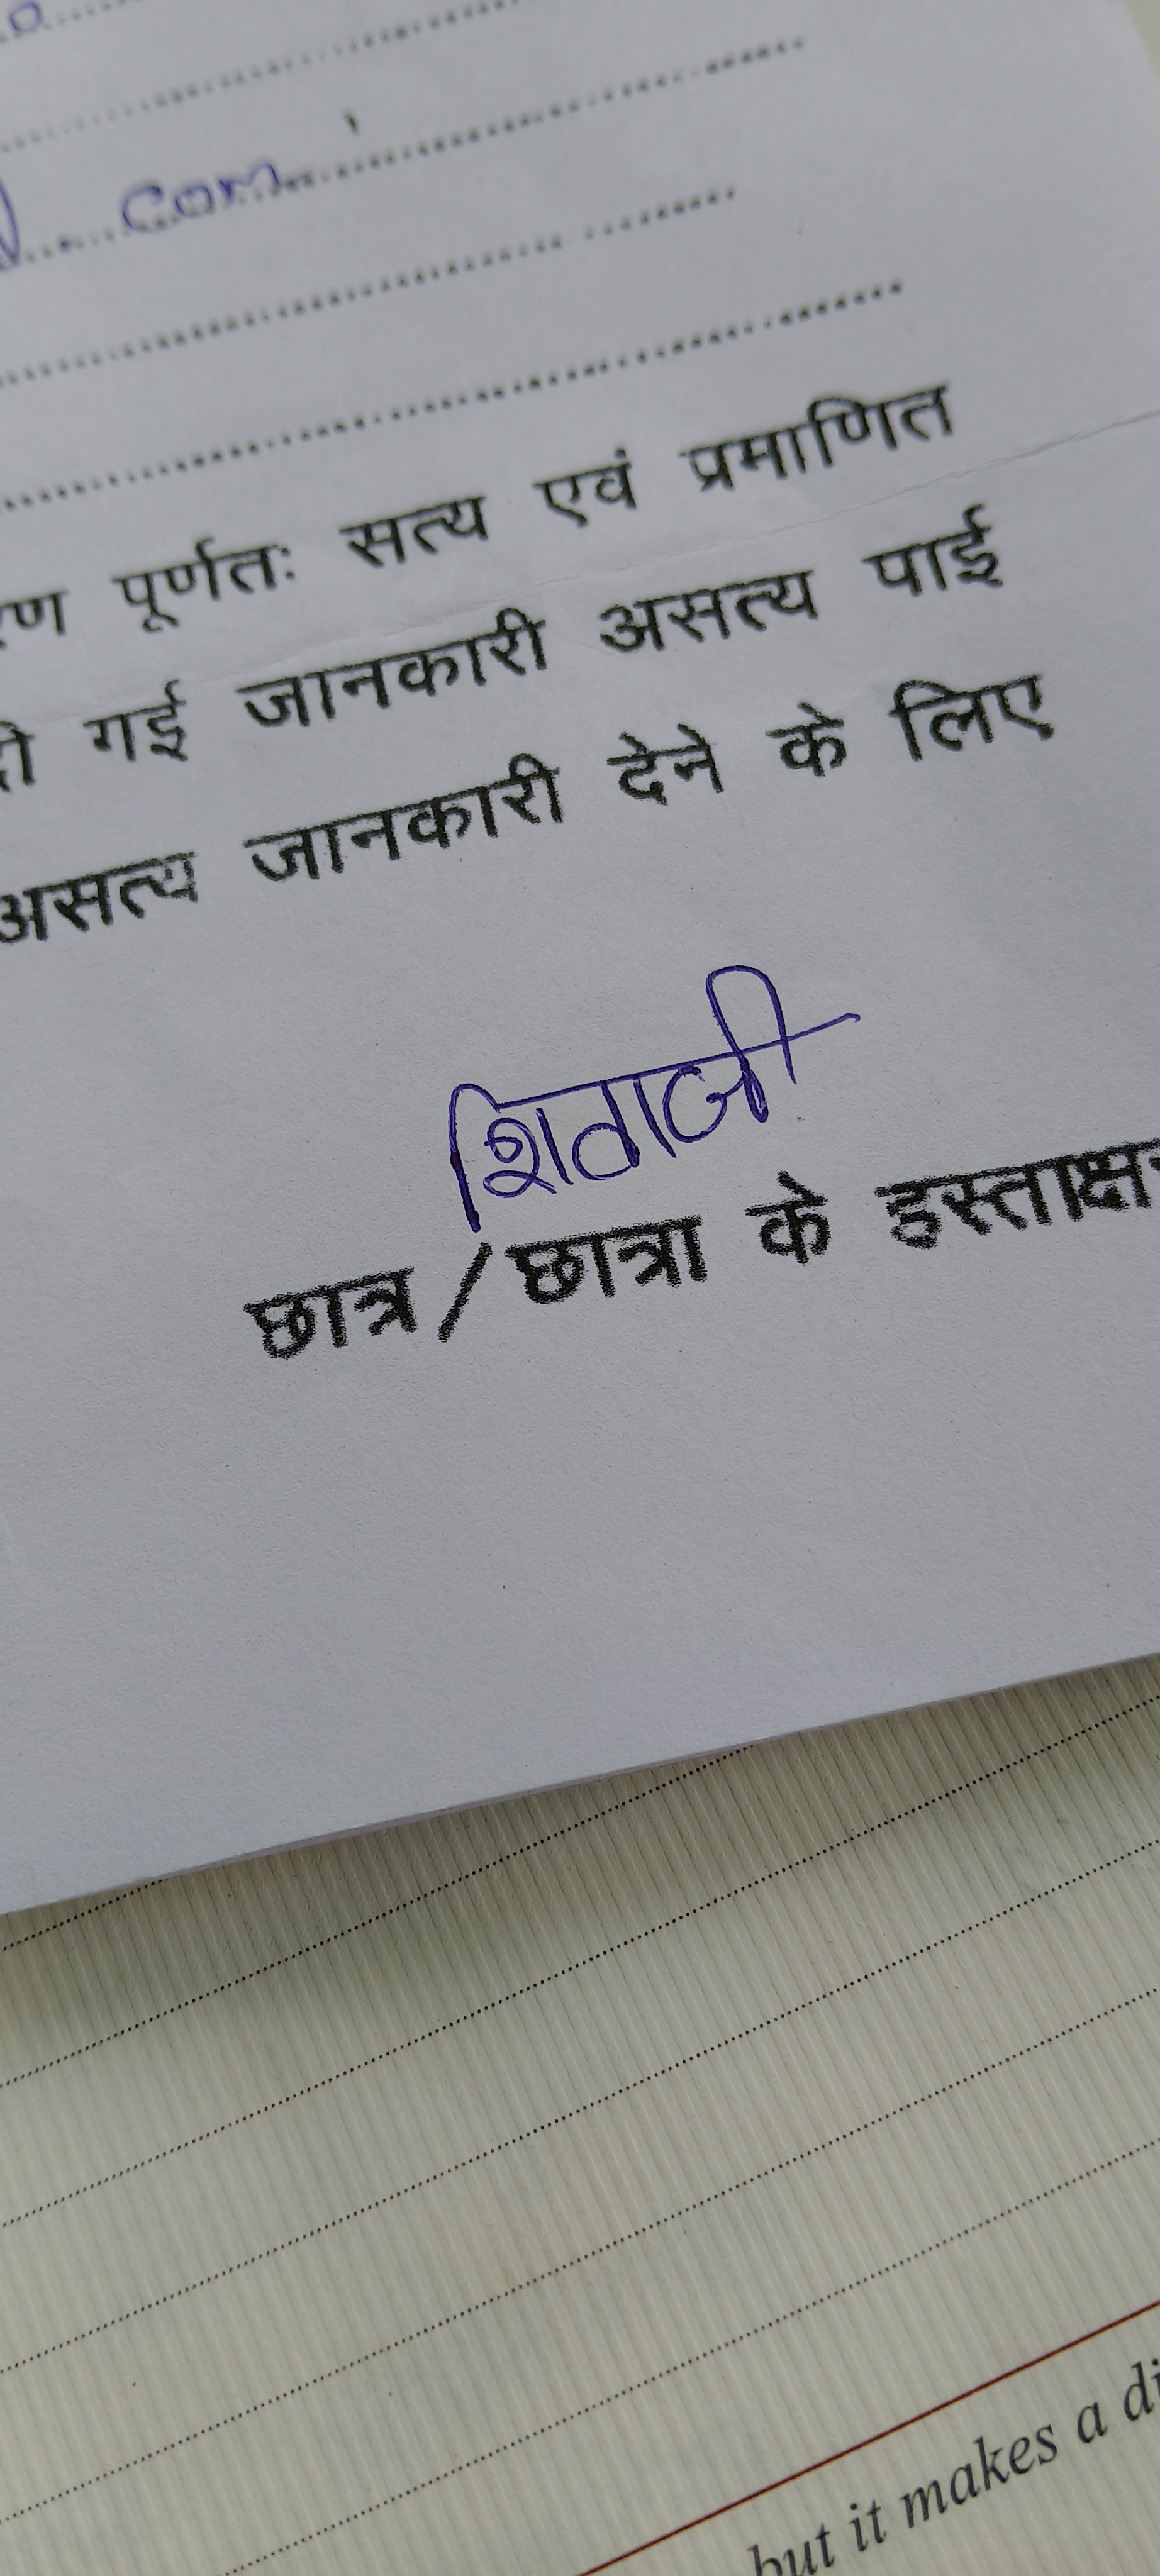 . com
रण पूर्णतः सत्य एवं प्रमाणित
दी गई जानकारी असत्य पाई
असत्य जानकारी देने के लिए
शिवाजी
छात्र / छात्रा के हस्ताक्षर
but it makes a di